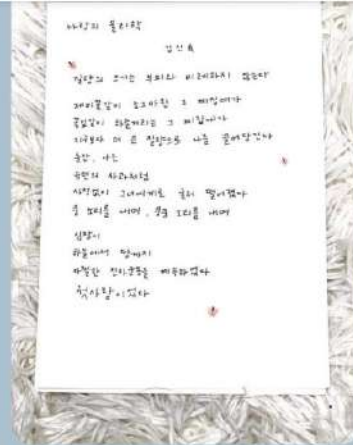 사랑의 물리학
김인육
질량의 크기는 부피와 비례하지 않는다
제비꽃같이 조그마한 그 계집애가
꽃잎같이 하늘거리는 그 계집애가
지구보다 더 큰 질량으로 나를 끌어당긴다
순간, 나는
뉴턴의 사과처럼
사정없이 그녀에게로 굴러 떨어졌다
쿵 소리를 내며, 쿵쿵 소리를 내며
심장이
하늘에서 땅까지
아찔한 진자운동을 계속하였다
첫사랑이었다